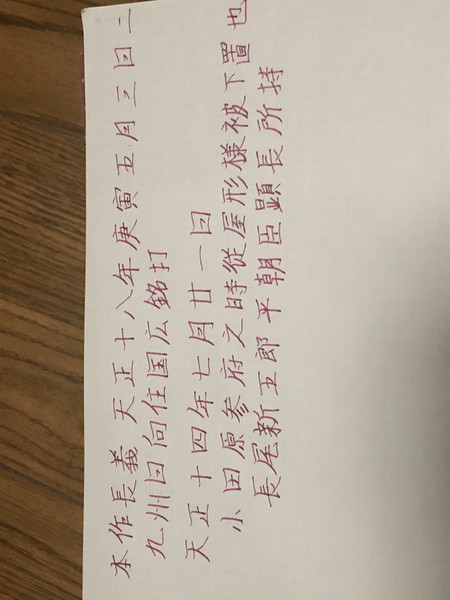 本作長義 天正十八年庚寅五月三日ニ
九州日向住国広銘打
天正十四年七月廿一日
小田原参府之時従屋形様被下置也
長尾新五郎平朝臣顕長所持